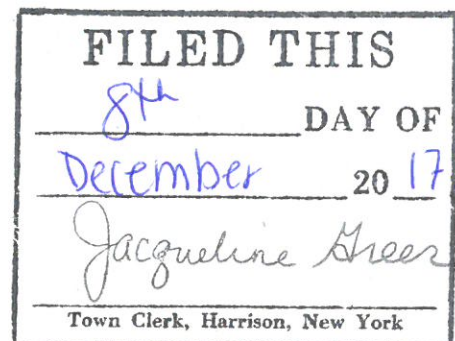 FILED THIS
8th DAY OF
December 20 17
Jacqueline Greer
Town Clerk, Harrison, New York